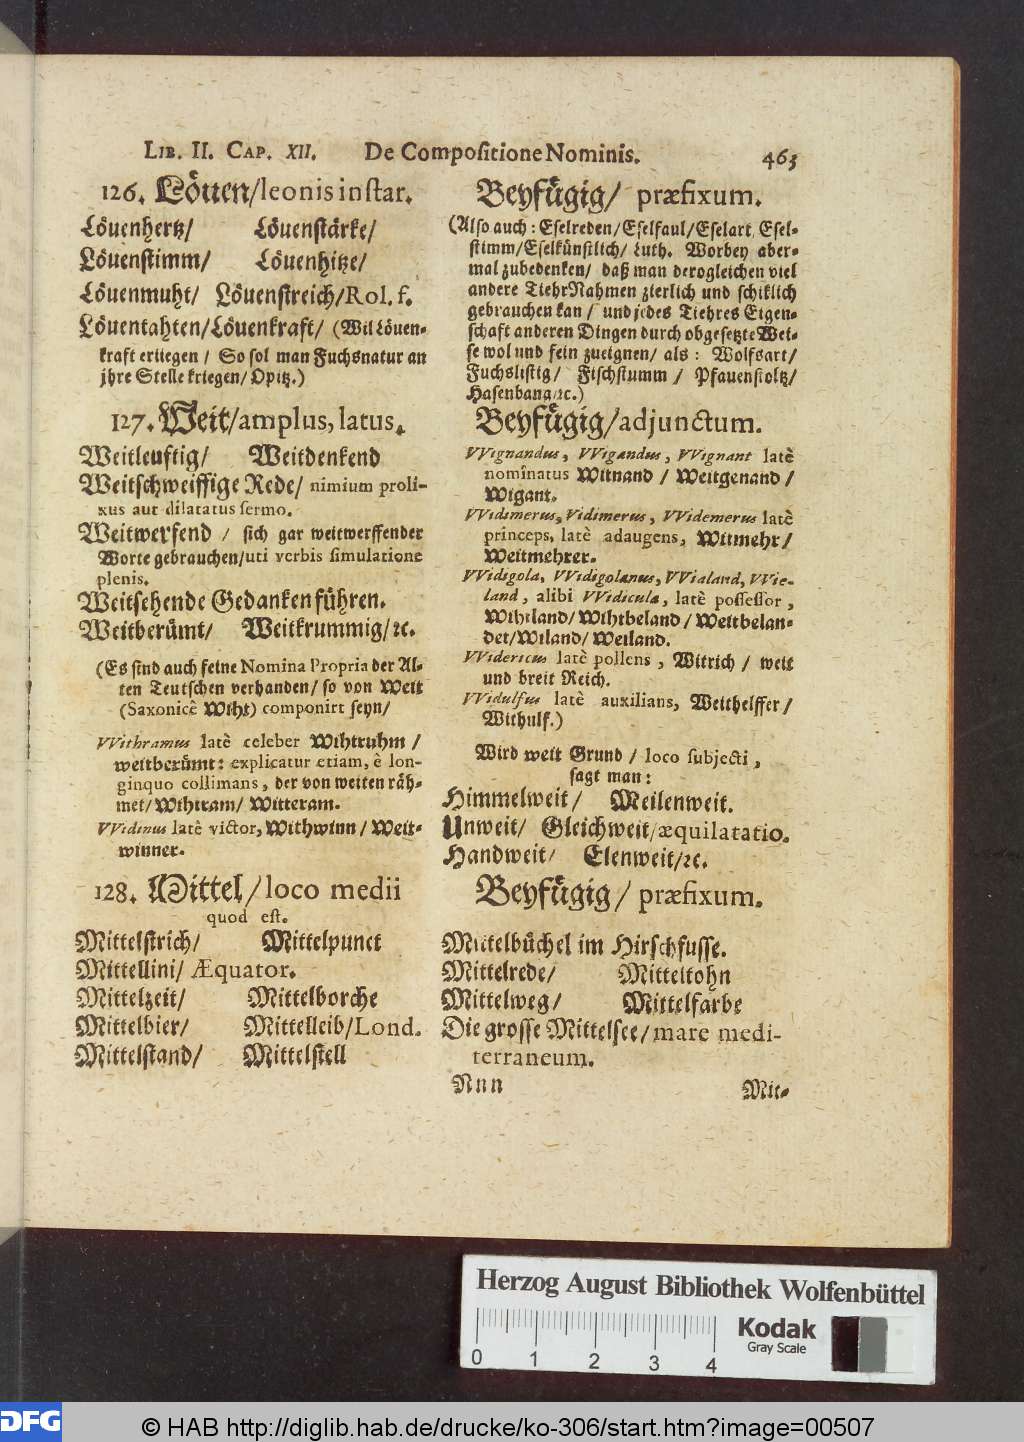 LIB. II. CAP. XII. De Compositione Nominis. 463
126. Löuen/leonis instar.
Löuenhertz/ Löuenstärke/
Löuenstimm/ Löuenhitze/
Löuenmuht/ Löuenstreich/Rol. f.
Löuentahten/Löuenkraft/ (Wil Löuen-
kraft erliegen / So sol man Fuchsnatur an
jhre Stelle kriegen/ Opitz.)
127. Weit/amplus, latus.
Weitleuftig/ Weitdenkend
Weitschweiffige Rede/ nimium proli-
xus aut dilatatus sermo.
Weitwerfend / sich gar weitwerffender
Worte gebrauchen/uti verbis simulatione
plenis.
Weitsehende Gedanken führen.
Weitberümt/ Weitkrummig/ꝛc.
(Es sind auch seine Nomina Propria der Al-
ten Teutschen verhanden/ so von Weit
(Saxonicè Wiht) componirt seyn/
VVithramus latè celeber Wihtruhm /
weitberümt: explicatur etiam, è lon-
ginquo collimans, der von weiten räh-
met/ Wihtram/ Witteram.
VVidinus latè victor, Withwinn/ Weit-
winner.
128. Mittel/loco medii
quod est.
Mittelstrich/ Mittelpunct
Mittellini/ Æquator.
Mittelzeit/ Mittelborche
Mittelbier/ Mittelleib/Lond.
Mittelstand/ Mittelstell
Beyfügig/ præfixum.
(Also auch: Eselreden/Eselfaul/Eselart, Esel-
stimm/Eselkünstlich/ Luth. Worbey aber-
mal zubedenken/ daß man derogleichen viel
andere TiehrNahmen zierlich und schiklich
gebrauchen kan / und jedes Tiehres Eigen-
schaft anderen Dingen durch obgesetzte Wei-
se wol und fein zueignen/ als: Wolfsart/
Fuchslistig/ Fischstumm / Pfauenstoltz/
Hasenbang/ꝛc.)
Beyfügig/adjunctum.
VVignandus, VVigandus, VVignant latè
nominatus Witnand / Weitgenand /
Wigant.
VVidimerus, Vidimerus, VVidemerus latè
princeps, latè adaugens, Witmehr/
Weitmehrer.
VVidigola, VVidigolanus, VVialand, VVie-
land, alibi VVidicula, latè possessor,
Wihtland/Wihtbeland/ Weitbelan-
det/Wiland/ Weiland.
VVidericus latè pollens, Witrich / weit
und breit Reich.
VVidulfus latè auxilians, Weithelffer/
Withulf.)
Wird weit Grund / loco subjecti,
sagt man:
Himmelweit/ Meilenweit.
Unweit/ Gleichweit/æquilatatio.
Handweit/ Elenweit/ꝛc.
Beyfügig / præfixum.
Mittelbüchel im Hirschfusse.
Mittelrede/ Mitteltohn
Mittelweg/ Mittelfarbe
Die grosse Mittelsee/mare medi-
terraneum.
Nun Mit-
Herzog August Bibliothek Wolfenbüttel
0 1 2 3 4
Kodak
Gray Scale
DFG © HAB http://diglib.hab.de/drucke/ko-306/start.htm?image=00507